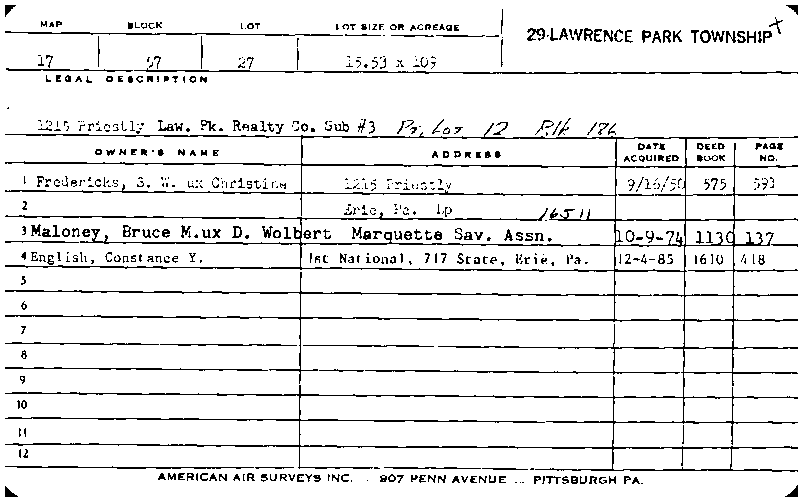 MAP BLOCK LOT LOT SIZE OR ACREAGE 29-LAWRENCE PARK TOWNSHIP
17 57 27 15.53 x 109
LEGAL DESCRIPTION
1215 Priestly Law. Pk. Realty Co. Sub #3 Pt. Lot 12 Blk 176
OWNER'S NAME ADDRESS DATE ACQUIRED DEED BOOK PAGE NO.
1 Fredericks, S. W. ux Christine 1215 Priestly 9/16/50 575 593
2 Erie, Pa. Lp 16511
3 Maloney, Bruce M.ux D. Wolbert Marquette Sav. Assn. 10-9-74 1130 137
4 English, Constance Y. 1st National, 717 State, Erie, Pa. 12-4-85 1610 418
5
6
7
8
9
10
11
12
AMERICAN AIR SURVEYS INC. .. 907 PENN AVENUE ... PITTSBURGH PA.